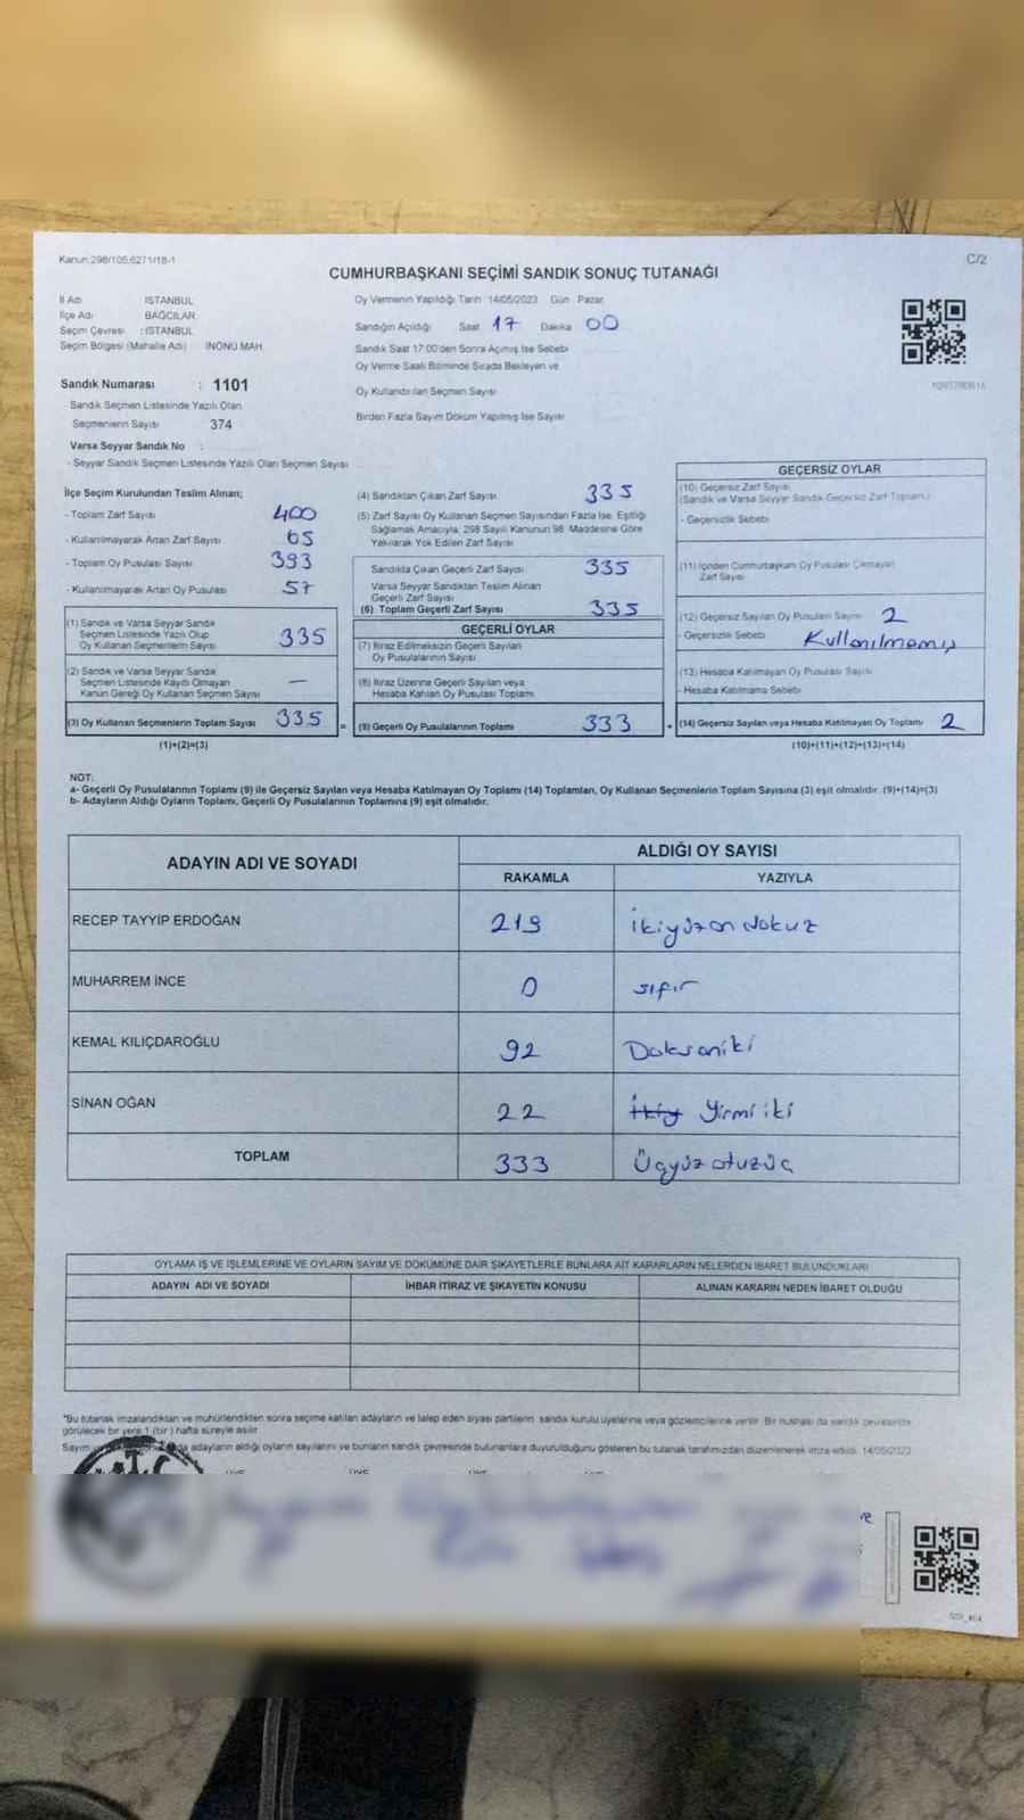 Kanun 298/105,6271/18-1
C/2
CUMHURBAŞKANI SEÇİMİ SANDIK SONUÇ TUTANAĞI
İl Adı İSTANBUL
İlçe Adı BAĞCILAR
Seçim Çevresi : İSTANBUL
Seçim Bölgesi (Mahalle Adı) İNÖNÜ MAH.
Oy Vermenin Yapıldığı Tarih 14/05/2023 Gün Pazar
Sandığın Açıldığı Saat 17 Dakika 00
Sandık Saat 17:00'den Sonra Açılmış İse Sebebi
Oy Verme Saati Bitiminde Sırada Bekleyen ve
Oy Kullandırılan Seçmen Sayısı
Birden Fazla Sayım Döküm Yapılmış İse Sayısı
Sandık Numarası : 1101
Sandık Seçmen Listesinde Yazılı Olan
Seçmenlerin Sayısı 374
Varsa Seyyar Sandık No :
- Seyyar Sandık Seçmen Listesinde Yazılı Olan Seçmen Sayısı
İlçe Seçim Kurulundan Teslim Alınan;
- Toplam Zarf Sayısı 400
- Kullanılmayarak Artan Zarf Sayısı 65
- Toplam Oy Pusulası Sayısı 393
- Kullanılmayarak Artan Oy Pusulası 57
(1) Sandık ve Varsa Seyyar Sandık
Seçmen Listesinde Yazılı Olup
Oy Kullanan Seçmenlerin Sayısı 335
(2) Sandık ve Varsa Seyyar Sandık
Seçmen Listesinde Kayıtlı Olmayan
Kanun Gereği Oy Kullanan Seçmen Sayısı —
(3) Oy Kullanan Seçmenlerin Toplam Sayısı 335
(1)+(2)=(3)
(4) Sandıktan Çıkan Zarf Sayısı 335
(5) Zarf Sayısı Oy Kullanan Seçmen Sayısından Fazla İse, Eşitliği
Sağlamak Amacıyla, 298 Sayılı Kanunun 98. Maddesine Göre
Yakılarak Yok Edilen Zarf Sayısı
Sandıkta Çıkan Geçerli Zarf Sayısı 335
Varsa Seyyar Sandıktan Teslim Alınan
Geçerli Zarf Sayısı
(6) Toplam Geçerli Zarf Sayısı 335
GEÇERLİ OYLAR
(7) İtiraz Edilmeksizin Geçerli Sayılan
Oy Pusulalarının Sayısı
(8) İtiraz Üzerine Geçerli Sayılan veya
Hesaba Katılan Oy Pusulası Toplamı
= (9) Geçerli Oy Pusulalarının Toplamı 333
GEÇERSİZ OYLAR
(10) Geçersiz Zarf Sayısı
(Sandık ve Varsa Seyyar Sandık Geçersiz Zarf Toplamı)
- Geçersizlik Sebebi
(11) İçinden Cumhurbaşkanı Oy Pusulası Çıkmayan
Zarf Sayısı
(12) Geçersiz Sayılan Oy Pusulası Sayısı 2
- Geçersizlik Sebebi Kullanılmamış
(13) Hesaba Katılmayan Oy Pusulası Sayısı
- Hesaba Katılmama Sebebi
+ (14) Geçersiz Sayılan veya Hesaba Katılmayan Oy Toplamı 2
(10)+(11)+(12)+(13)=(14)
NOT:
a- Geçerli Oy Pusulalarının Toplamı (9) ile Geçersiz Sayılan veya Hesaba Katılmayan Oy Toplamı (14) Toplamları, Oy Kullanan Seçmenlerin Toplam Sayısına (3) eşit olmalıdır. (9)+(14)=(3)
b- Adayların Aldığı Oyların Toplamı, Geçerli Oy Pusulalarının Toplamına (9) eşit olmalıdır.
ADAYIN ADI VE SOYADI
ALDIĞI OY SAYISI
RAKAMLA YAZIYLA
RECEP TAYYİP ERDOĞAN 219 ikiyüzondokuz
MUHARREM İNCE 0 sıfır
KEMAL KILIÇDAROĞLU 92 Doksaniki
SİNAN OĞAN 22 ikiy Yirmiiki
TOPLAM 333 Üçyüzotuzüç
OYLAMA İŞ VE İŞLEMLERİNE VE OYLARIN SAYIM VE DÖKÜMÜNE DAİR ŞİKAYETLERLE BUNLARA AİT KARARLARIN NELERDEN İBARET BULUNDUKLARI
ADAYIN ADI VE SOYADI İHBAR İTİRAZ VE ŞİKAYETİN KONUSU ALINAN KARARIN NEDEN İBARET OLDUĞU
*Bu tutanak imzalandıktan ve mühürlendikten sonra seçime katılan adayların ve talep eden siyasi partilerin sandık kurulu üyelerine veya gözlemcilerine verilir. Bir nüshası da sandık çevresinde
görülecek bir yere 1 (bir) hafta süreyle asılır.
Sayım adayların aldığı oyların sayılarını ve bunların sandık çevresinde bulunanlara duyurulduğunu gösteren bu tutanak tarafımızdan düzenlenerek imza edildi. 14/05/2023